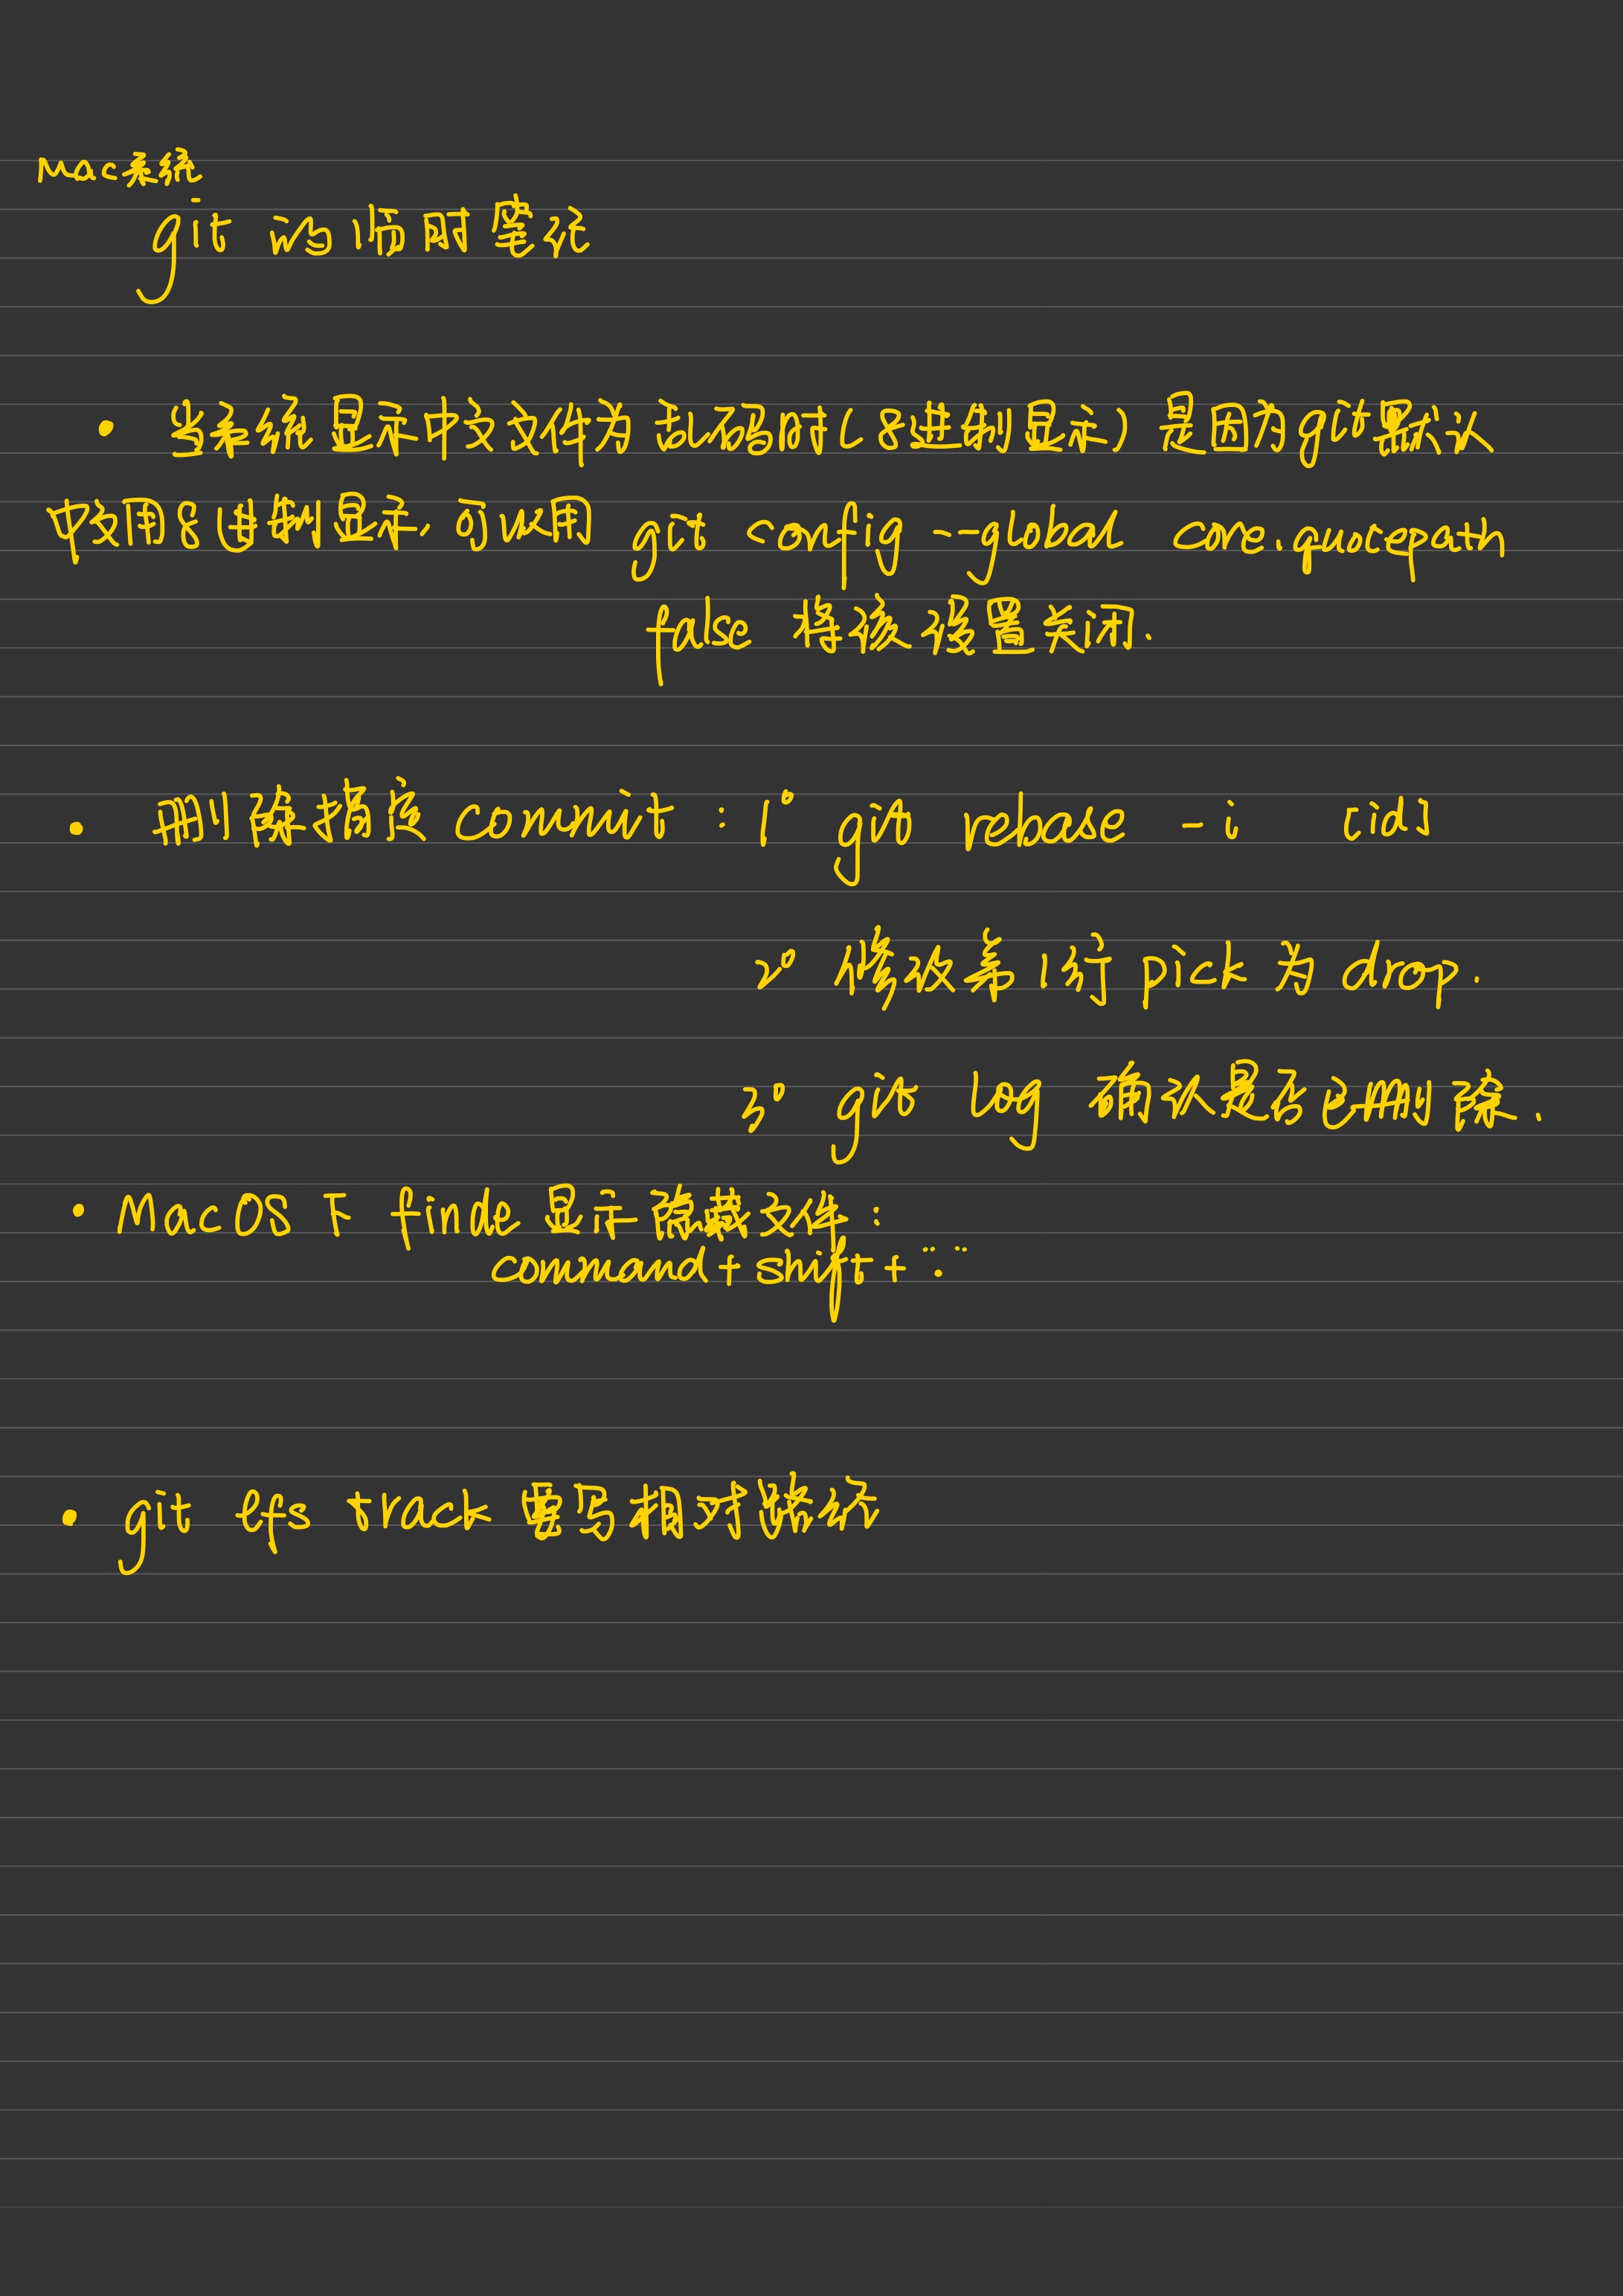 Mac系统
git 的临时笔记
· 当系统显示中文文件为乱码时(8进制显示)是因为git默认
中文用8进制显示, 可以用 git config --global core.quotepath
false 将该设置关闭.
· 删除指定 commit : 1° git rebase -i [id]
2° 修改第1行 pick 为 drop.
3° git log 确认是否已删除.
· MacOS下 finde 显示隐藏文件:
command+shift+"."
· git lfs track 要写相对路径